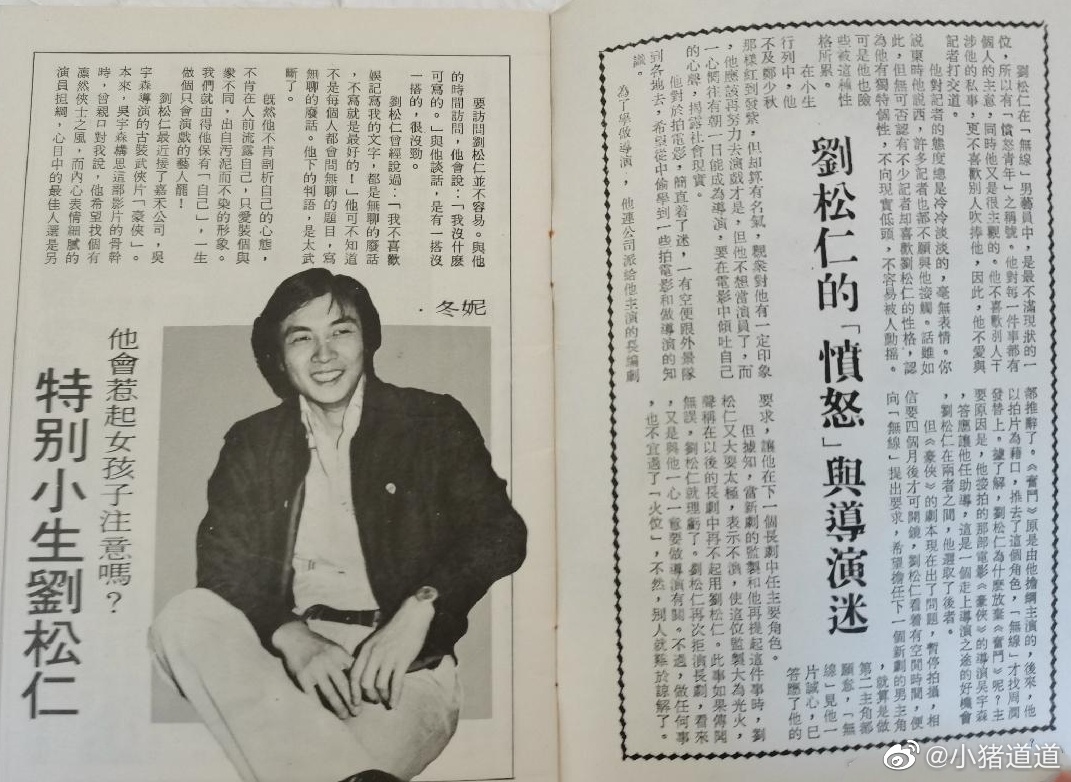 劉松仁的「憤怒」與導演迷
劉松仁在「無線」男藝員中，是最不滿現狀的一
位，所以有「憤怒青年」之稱號。他對每一件事都有
個人的主意，同時他又是很主觀的。他不喜歡別人干
涉他的私事，更不喜歡別人吹捧他，因此，他不愛與
記者打交道。
他對記者的態度總是冷冷淡淡的，毫無表情。你
說東時他說西，許多記者也都不願與他接觸。話雖如
此，但無可否認有不少記者却喜歡劉松仁的性格，認
為他有獨特個性，不向現實低頭，不容易被人動搖。
可是他也險
些被這種性
格所累。
在小生
行列中，他
不及鄭少秋
那樣紅到發紫，但却算有名氣，觀衆對他有一定印象
，他應該再努力去演戲才是，但他不想當演員了，而
一心嚮往有朝一日能成為導演，要在電影中傾吐自己
的心聲，揭露社會現實。
他對於拍電影，簡直着了迷，一有空便跟外景隊
到各處去，希望從中偷學到一些拍電影和做導演的知
識。
為了學做導演，他連公司派給他主演的長編劇
都推辭了。《奮鬥》原是由他擔綱主演的，後來，他
以拍片為藉口，推去了這個角色，「無線」才找周潤
發替上。據了解，劉松仁為什麼放棄《奮鬥》呢？主
要原因是，他接拍的那部電影《豪俠》的導演吳宇森
，答應讓他任助導，這是一個走上導演之途的好機會
，劉松仁在兩者之間，他選取了後者。
但《豪俠》的劇本現在出了問題，暫停拍攝，相
信要四個月後才可開鏡，劉松仁看着有空閒時間，便
向「無線」提出要求，希望擔任下一個新劇的男主角
，就算是做
第二主角都
願意，「無
線」見他一
片誠心，已
答應了他的
要求，讓他在下一個長劇中任主要角色。
但據知，當新劇的監製和他再提起這件事時，劉
松仁又大耍太極，表示不演，使這位監製大為光火，
聲稱在以後的長劇中再不起用劉松仁。此事如果傳聞
無誤，劉松仁就理虧了。劉松仁再次拒演長劇，看來
，又是與他一心一意要做導演有關。不過，做任何事
，也不宜過了「火位」，不然，別人就難於諒解了。
特别小生劉松仁
他會惹起女孩子注意嗎？
·冬妮
要訪問劉松仁並不容易。與他
的時間訪問，他會說：「我沒什麼
可寫的。」與他談話，是有一搭沒
一搭的，很沒勁。
劉松仁曾經說過：「我不喜歡
娛記寫我的文字，都是無聊的廢話
，不寫就是最好的！」他可不知道
不是每個人都會問無聊的題目，寫
無聊的廢話。他下的判語，是太武
斷了。
既然他不肯剖析自己的心態，
不肯在人前流露自己，只愛裝個與
衆不同，出自污泥而不染的形象。
我們就由得他保有「自己」，一生
做個只會演戲的藝人罷！
劉松仁最近接了嘉禾公司，吳
宇森導演的古裝武俠片「豪俠」。
本來，吳宇森構思這部影片的骨幹
時，曾親口對我說，他希望找個有
凛然俠士之風，而內心表情細膩的
演員担綱，心目中的最佳人選是另
@小猪道道